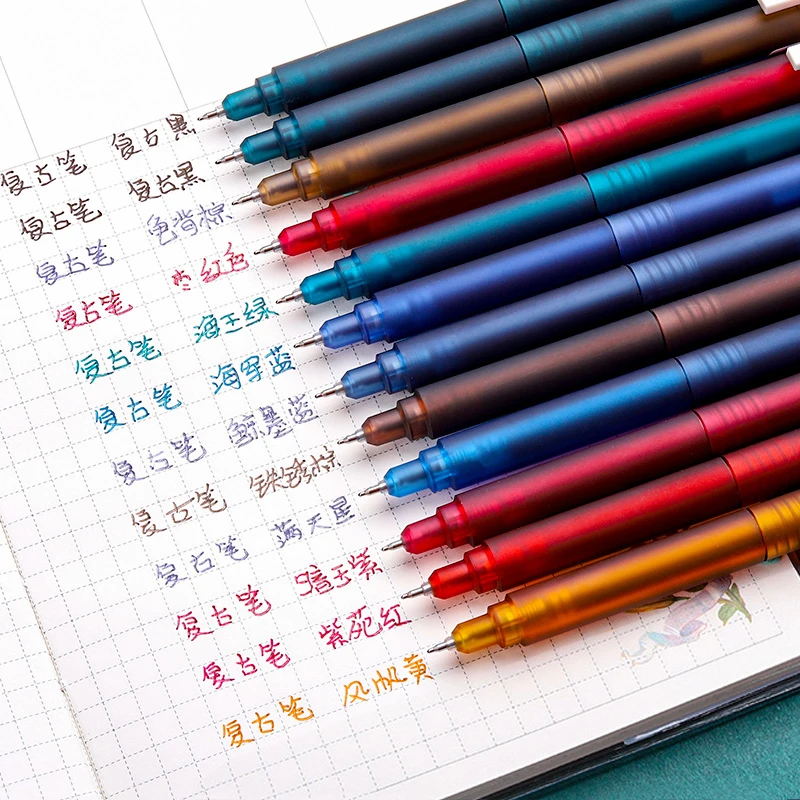 复古笔 复古黑
复古笔 复古黑
复古笔 龟背棕
复古笔 枣红色
复古笔 海王绿
复古笔 海军蓝
复古笔 鲸墨蓝
复古笔 铁锈棕
复古笔 满天星
复古笔 暗玉紫
复古笔 紫苑红
复古笔 风帆黄